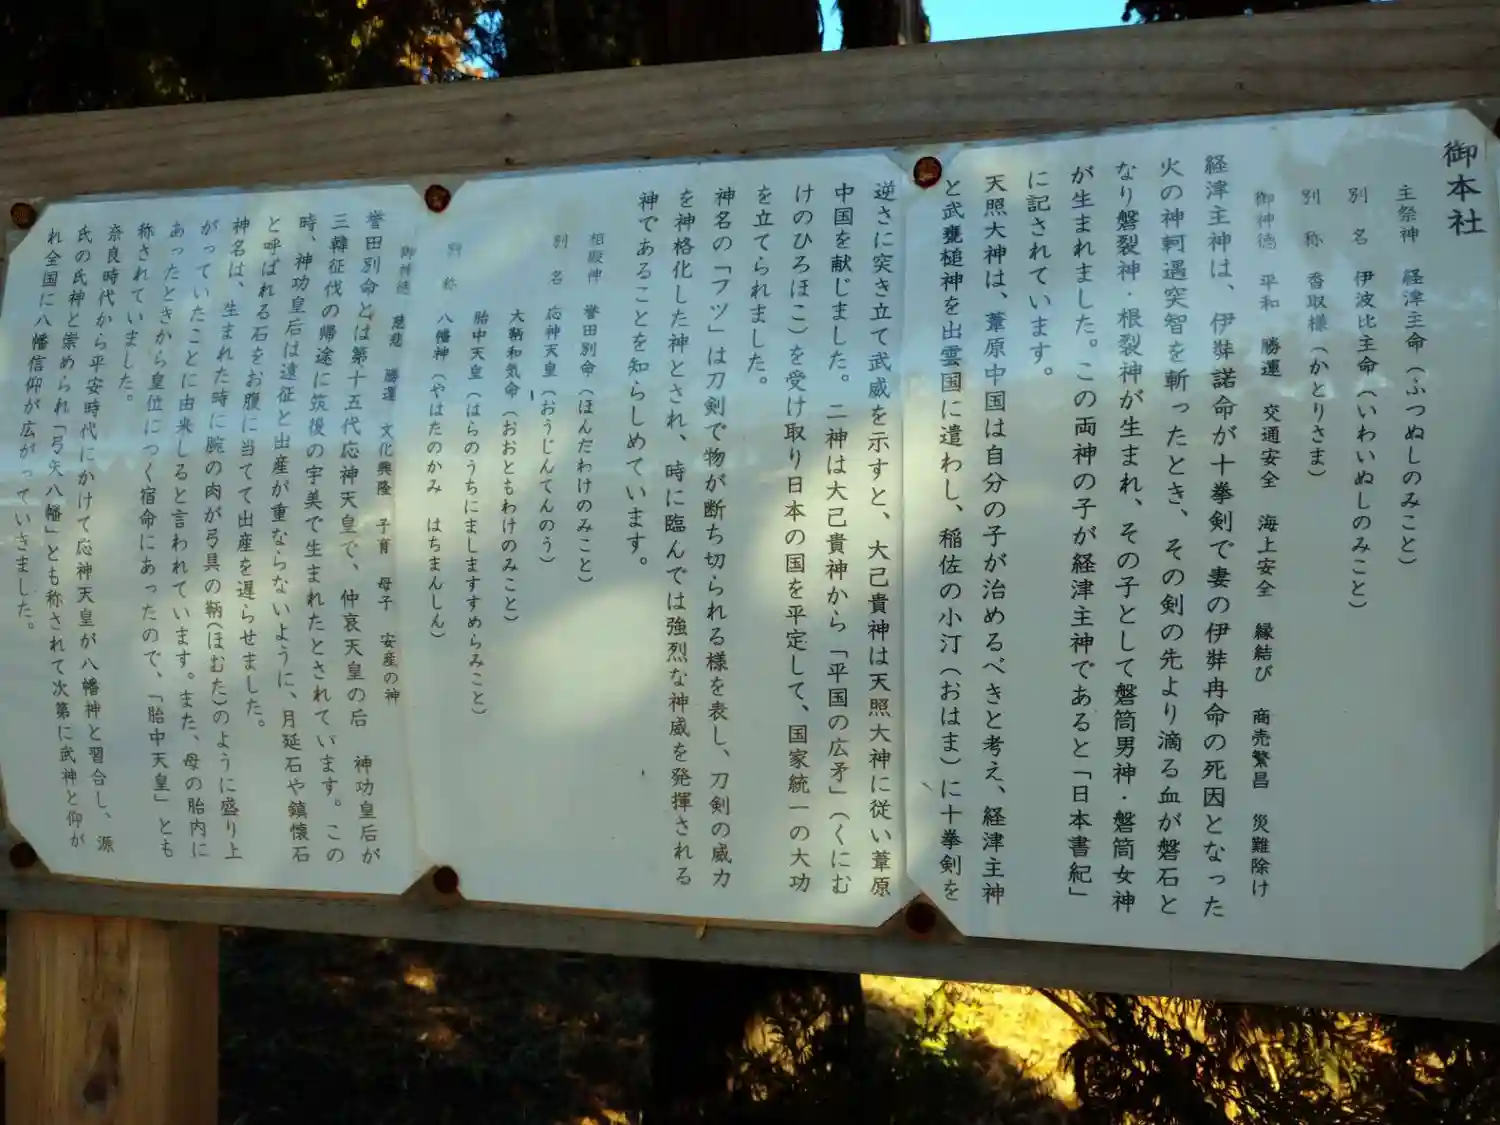 御本社
主祭神　経津主命（ふつぬしのみこと）
別　名　伊波比主命（いわいぬしのみこと）
別　称　香取様（かとりさま）
御神徳　平和　勝運　交通安全　海上安全　縁結び　商売繁昌　災難除け
経津主神は、伊弉諾命が十拳剣で妻の伊弉冉命の死因となった
火の神軻遇突智を斬ったとき、その剣の先より滴る血が磐石と
なり磐裂神・根裂神が生まれ、その子として磐筒男神・磐筒女神
が生まれました。この両神の子が経津主神であると「日本書紀」
に記されています。
天照大神は、葦原中国は自分の子が治めるべきと考え、経津主神
と武甕槌神を出雲国に遣わし、稲佐の小汀（おはま）に十拳剣を
逆さに突き立て武威を示すと、大己貴神は天照大神に従い葦原
中国を献じました。二神は大己貴神から「平国の広矛」（くにむ
けのひろほこ）を受け取り日本の国を平定して、国家統一の大功
を立てられました。
神名の「フツ」は刀剣で物が断ち切られる様を表し、刀剣の威力
を神格化した神とされ、時に臨んでは強烈な神威を発揮される
神であることを知らしめています。
相殿神　誉田別命（ほんだわけのみこと）
別　名　応神天皇（おうじんてんのう）
大鞆和気命（おおともわけのみこと）
胎中天皇（はらのうちにましますすめらみこと）
別　称　八幡神（やはたのかみ　はちまんしん）
御神徳　慈悲　勝運　文化興隆　子育　母子　安産の神
誉田別命とは第十五代応神天皇で、仲哀天皇の后　神功皇后が
三韓征伐の帰途に筑後の宇美で生まれたとされています。この
時、神功皇后は遠征と出産が重ならないように、月延石や鎮懐石
と呼ばれる石をお腹に当てて出産を遅らせました。
神名は、生まれた時に腕の肉が弓具の鞆（ほむた）のように盛り上
がっていたことに由来しると言われています。また、母の胎内に
あったときから皇位につく宿命にあったので、「胎中天皇」とも
称されていました。
奈良時代から平安時代にかけて応神天皇が八幡神と習合し、源
氏の氏神と崇められ「弓矢八幡」とも称されて次第に武神と仰が
れ全国に八幡信仰が広がっていきました。